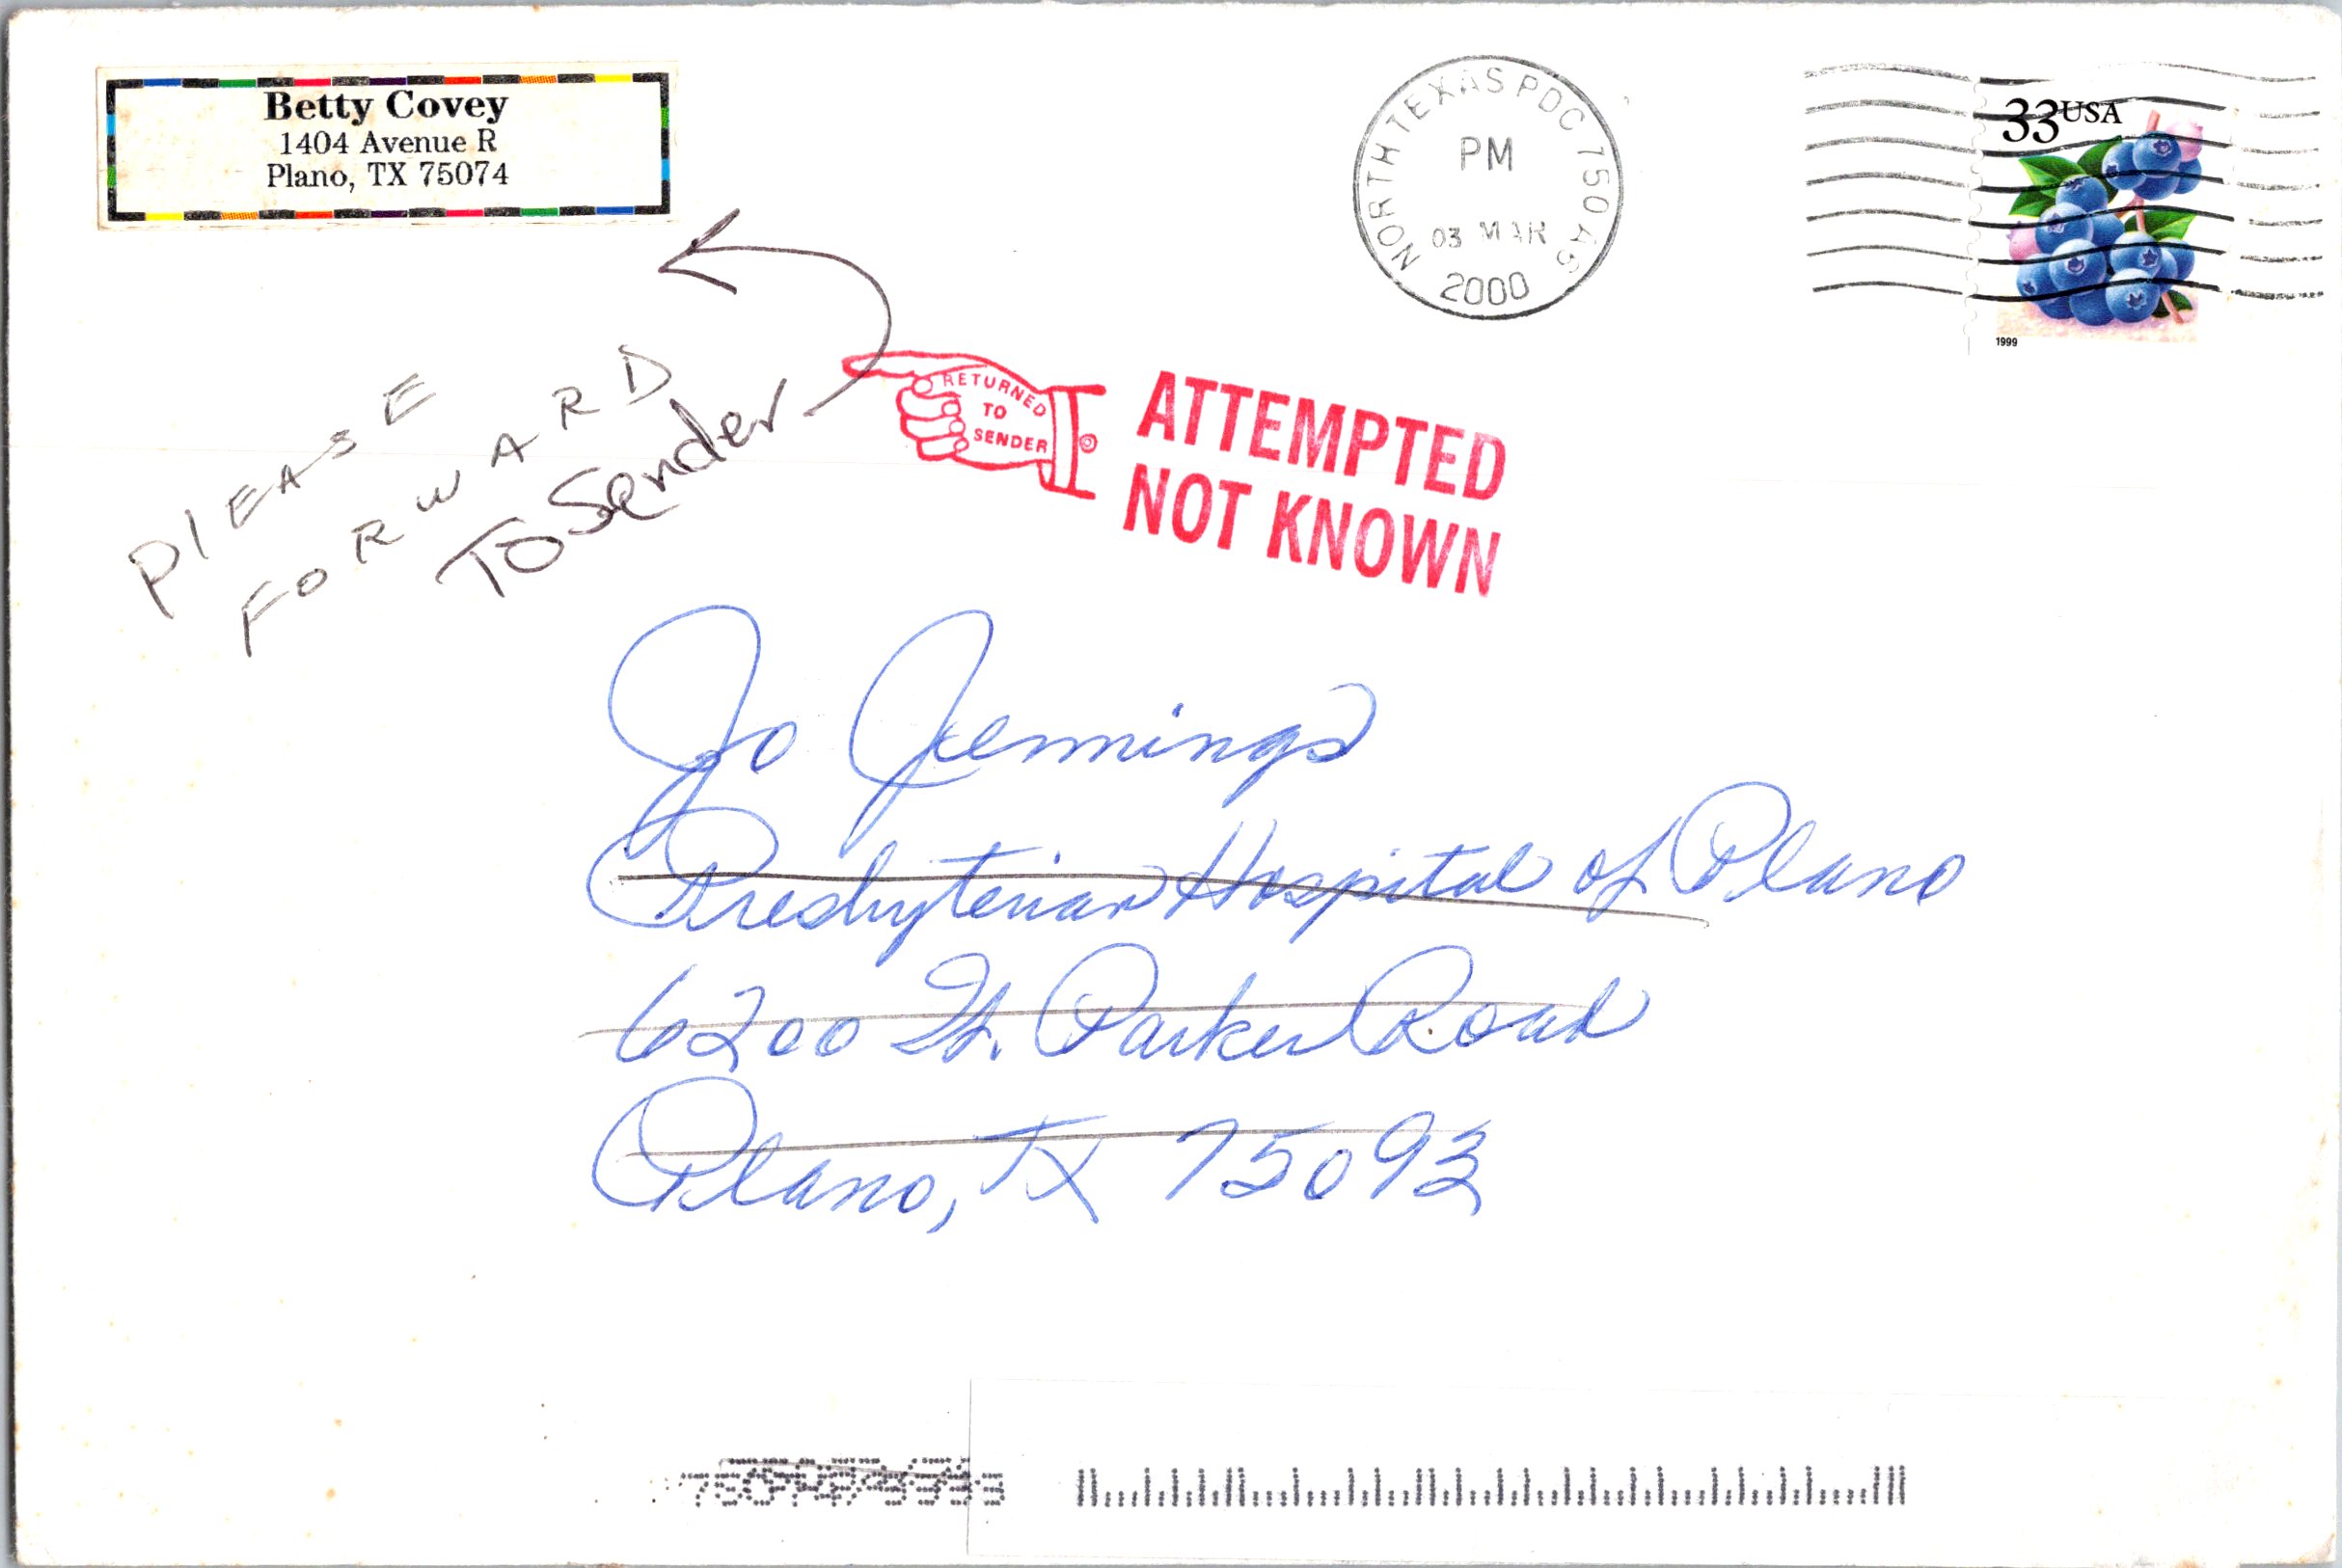 Betty Covey
1404 Avenue R
Plano, TX 75074
NORTH TEXAS PDC 750
PM
03 MAR
2000
33 USA
1999
PlEASE
FORWARD
TO Sender
RETURNED
TO
SENDER
ATTEMPTED
NOT KNOWN
Jo Jennings
Presbyterian Hospital of Plano
6200 W. Parker Road
Plano, TX 75093